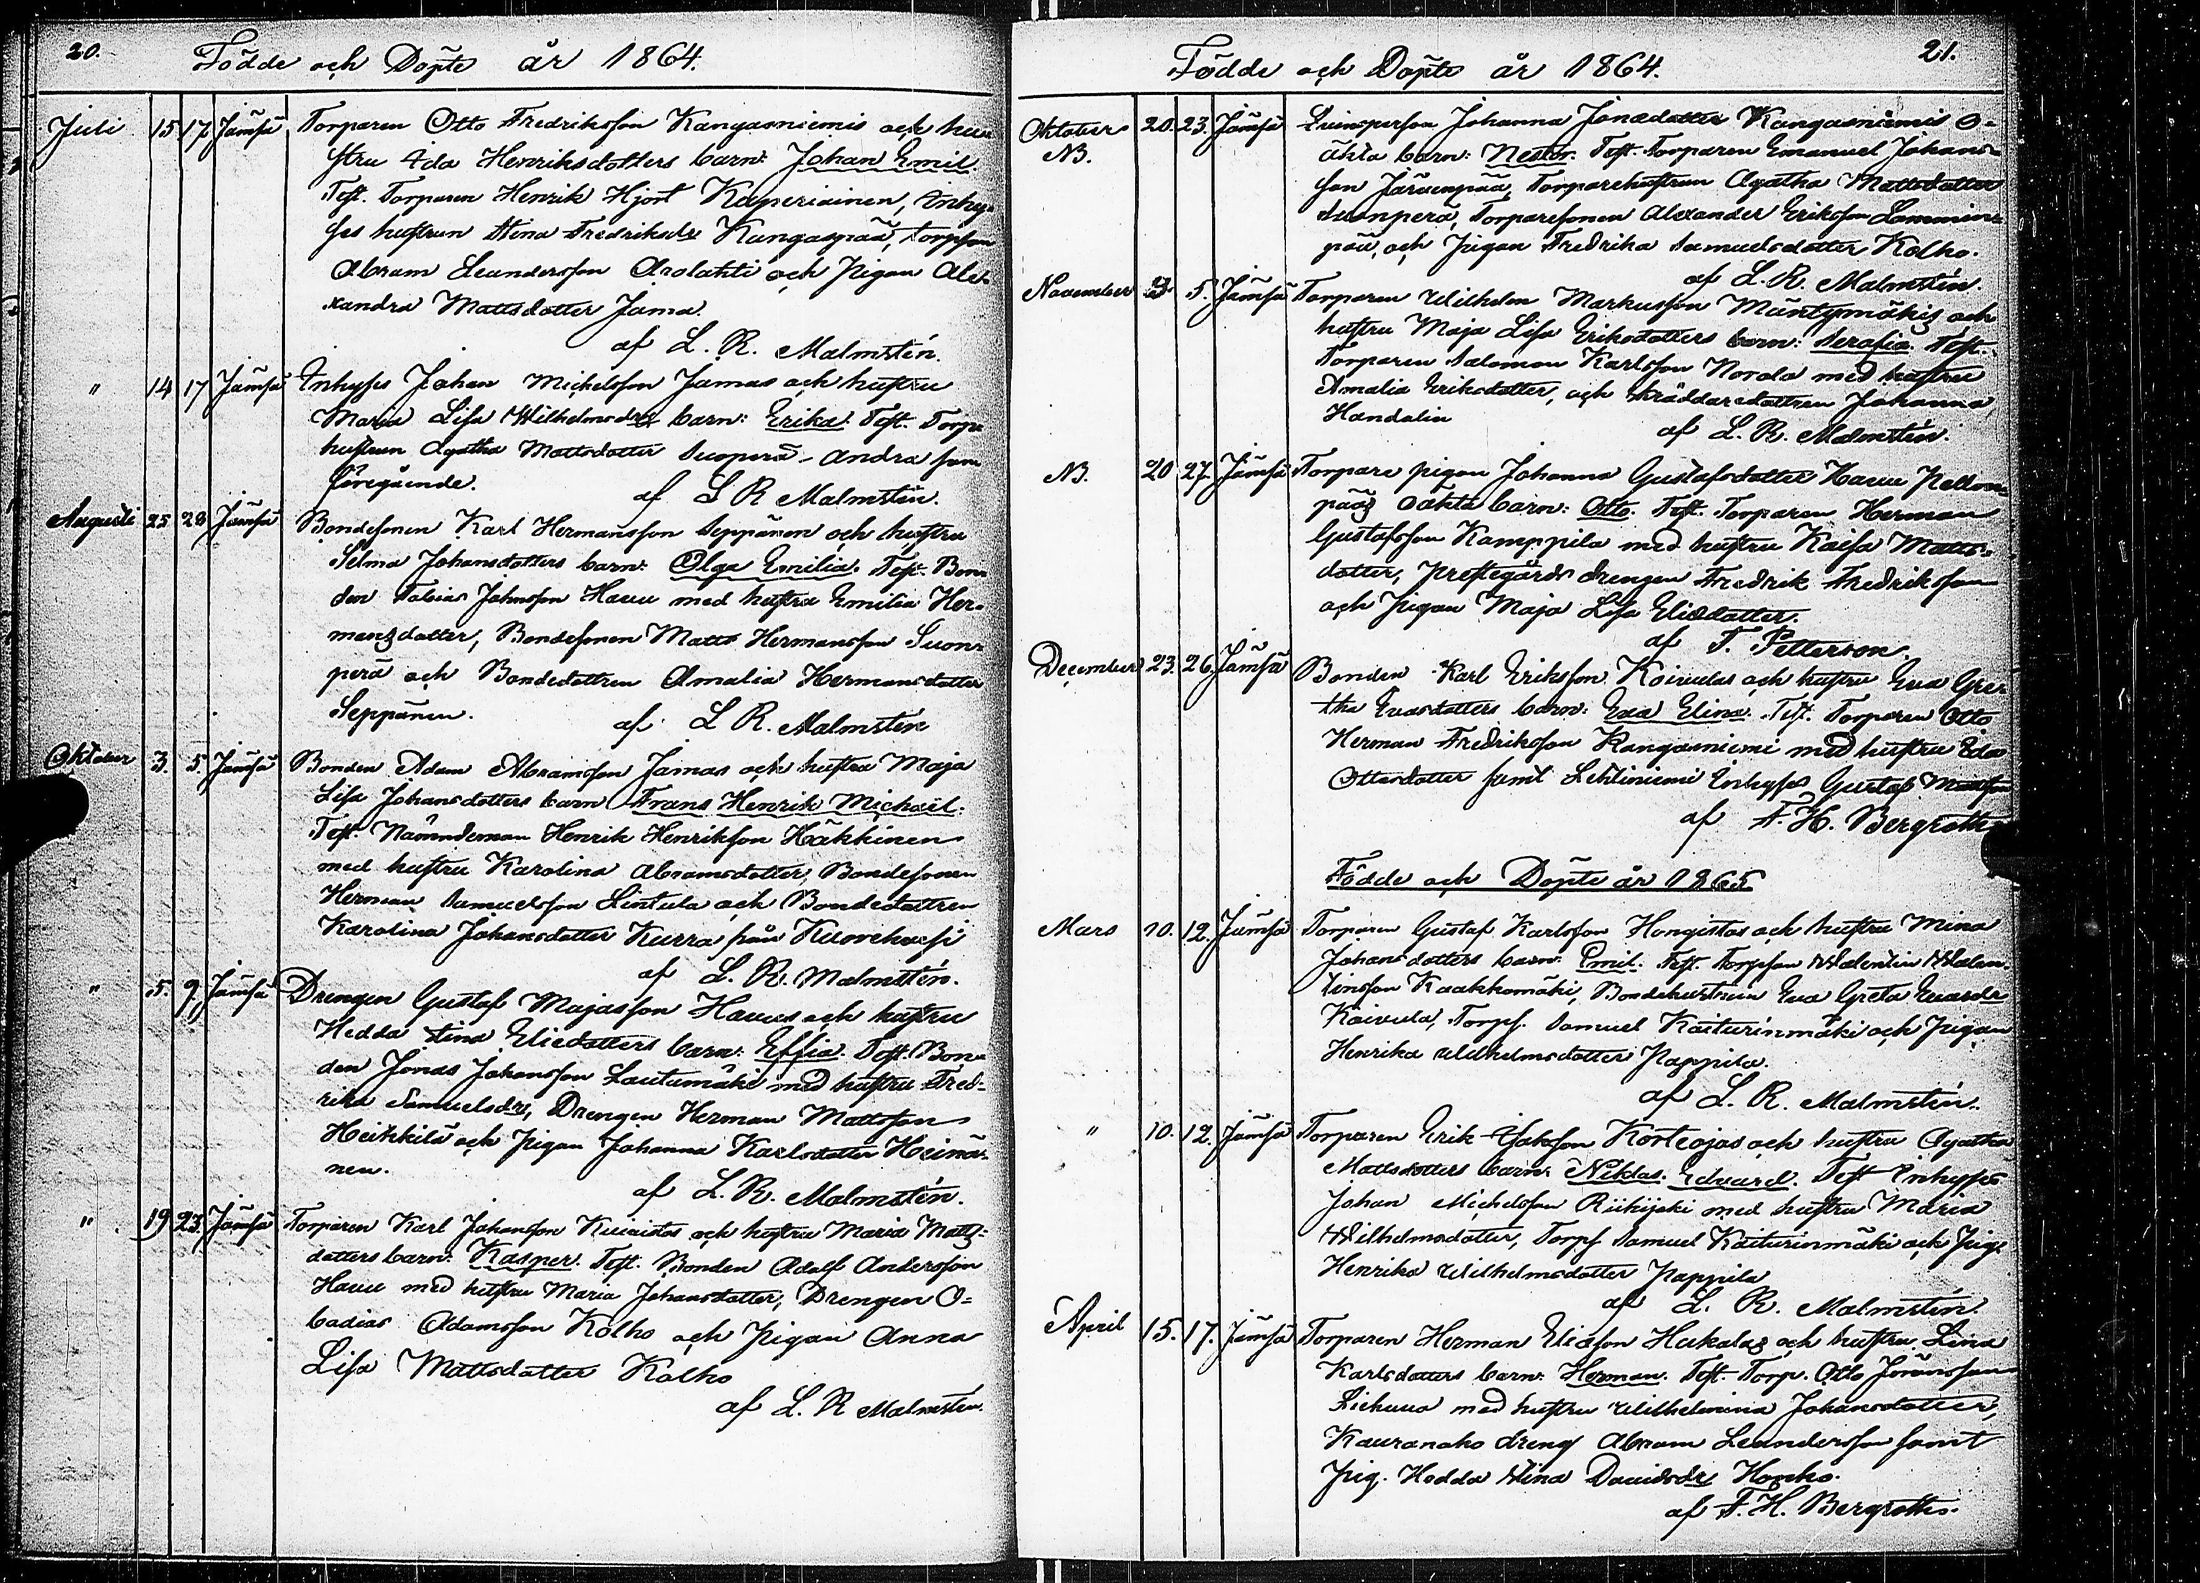 20. Födde och Döpte år 1864.
Juli 15 17. Jämsä Torparen Otto Fredriksson Kangasniemis och hu-
stru Eda Henriksdotters barn: Johan Emil.
Test. Torparen Henrik Hjort Kaperiainen, Inhy-
ses hustrun Stina Fredriksdr Kangaspää, torpson
Abram Leandersson Arolahti och Pigan Ale-
xandra Mattsdotter Jama.
af L. R. Malmstén.
" 14 17 Jämsä Inhyses Johan Michelsson Jamas och hustru
Maria Lisa Wilhelmsdrs barn: Erika. Test. Torpa
hustrun Agatha Mattsdotter Suoperä - andra som
föregående.
af L R Malmstén.
Augusti 25 28 Jämsä Bondesonen Karl Hermansson Seppänen och hustru
Selma Johansdotters barn: Olga Emilia. Test. Bon-
den Tobias Johnsson Hauu med hustru Emilia Her-
mansdotter, Bondesonen Matts Hermansson Suon-
perä och Bondedottren Amalia Hermansdotter
Seppänen.
af L R. Malmstén
Oktober 3. 5 Jämsä Bonden Adam Abramsson Jamas och hustru Maja
Lisa Johansdotters barn Frans Henrik Michael.
Test. Nämndeman Henrik Henriksson Häkkinen
med hustru Karolina Abramsdotter, Bondesonen
Herman Samuelsson Lintula och Bondedottren
Karolina Johansdotter Kurra från Kuorehvesi
af L. R. Malmstén.
" 5. 9. Jämsä Drengen Gustaf Majasson Hauus och hustru
Hedda Stina Eliedotters barn: Effia. Test. Bon-
den Jonas Johansson Lautamäki med hustru Fred-
rika Samuelsdr, Drengen Herman Mattsson
Heikkilä och Pigan Johanna Karlsdotter Heinä-
nen.
af L. R. Malmstén.
" 19 23. Jämsä Torparen Karl Johansson Kuiaistos och hustru Maria Matts-
dotters barn: Kasper. Test. Bonden Adolf Andersson
Hauu med hustru Maria Johansdotter, Drengen O-
badias Adamsson Kolho och Pigan Anna
Lisa Mattsdotter Kolho
af L. R Malmstén.
Födde och Döpte år 1864. 21.
Oktober 20. 23. Jämsä Qvinsperson Johanna Jonædotter Kangasniemis o-
NB. äkta barn: Nestor. Test. Torparen Emanuel Johans-
son Järvenpää, Torparehustrun Agatha Mattsdotter
Suonperä, Torparesonen Alexander Eriksson Lammin-
pää, och Pigan Fredrika Samuelsdotter Kolho.
af L. R. Malmstén.
November 3. 5. Jämsä Torparen Wilhelm Markusson Mäntymäkis och
hustru Maja Lisa Eriksdotters barn: Serafia. Test.
Torparen Salomon Karlsson Norola med hustru
Amalia Eriksdotter, och Skräddaredottren Johanna
Handolin
af L. R. Malmstén.
NB. 20 27. Jämsä Torpare pigan Johanna Gustafsdotter Hauu Pellon-
pääs oäkta barn: Otto. Test. Torparen Herman
Gustafsson Kamppila med hustru Kaisa Matts-
dotter, prestegårds drengen Fredrik Fredriksson
och Pigan Maja Lisa Eliedotter.
af T. Petterson.
December 23. 26. Jämsä Bonden Karl Eriksson Koivulas och hustru Eva Gre-
tha Evasdotters barn: Eva Elina. Test. Torparen Otto
Herman Fredriksson Kangasniemi med hustru Eda
Ottosdotter samt Lehtiniemi Inhyses Gustaf Mattson
af F. H. Bergroth.
Födde och Döpte år 1865
Mars 10. 12. Jämsä Torparen Gustaf Karlsson Hongistos och hustru Mina
Johansdotters barn: Emil. Test. Torpson Walentin Walen-
tinsson Kaakkomäki, Bondehustrun Eva Greta Evasdr
Koivula, Torps. Samuel Kaiturinmäki och Pigan
Henrika Wilhelmsdotter Pappila.
af L. R. Malmstén.
" 10. 12. Jämsä Torparen Erik Jakosson Korteojas och hustru Agatha
Mattsdotters barn: Niklas Edvard. Test. Inhyses
Johan Michelsson Riihijoki med hustru Maria
Wilhelmsdotter, Torps Samuel Kaiturinmäki och Pig.
Henrika Wilhelmsdotter Pappila
af L. R. Malmstén.
April 15. 17. Jämsä Torparen Herman Eliasson Hakalas och hustru Lina
Karlsdotters barn: Herman. Test. Torp. Otto Jöransson
Liehuua med hustru Wilhelmina Johansdotter,
Kauranaho dreng Abram Leandersson samt
Pig. Hedda Stina Davidsdr Honko.
af F. H. Bergroth.